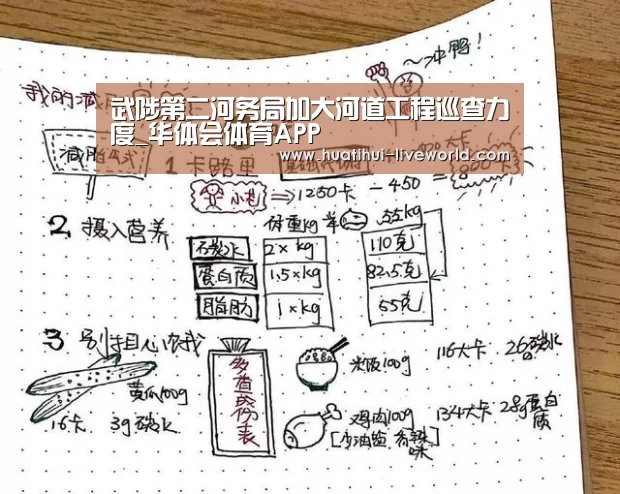 ~冲鸭!
我的减
武陟第二河务局加大河道工程巡查力
度_华体会体育APP
www.huatihui-liveworld.com
减脂公式
1 卡路里
小杜 ⇒ 1250卡 - 450 = 800卡
2. 摄入营养
体重kg 55kg
碳水 2×kg 110克
蛋白质 1.5×kg 82.5克
脂肪 1×kg 55克
3. 别担心饿我
黄瓜100g
16卡 3g碳水
多看成份表
米饭100g 116大卡 26g碳水
鸡肉100g 134大卡 28g蛋白质
[少油盐,香辣味]